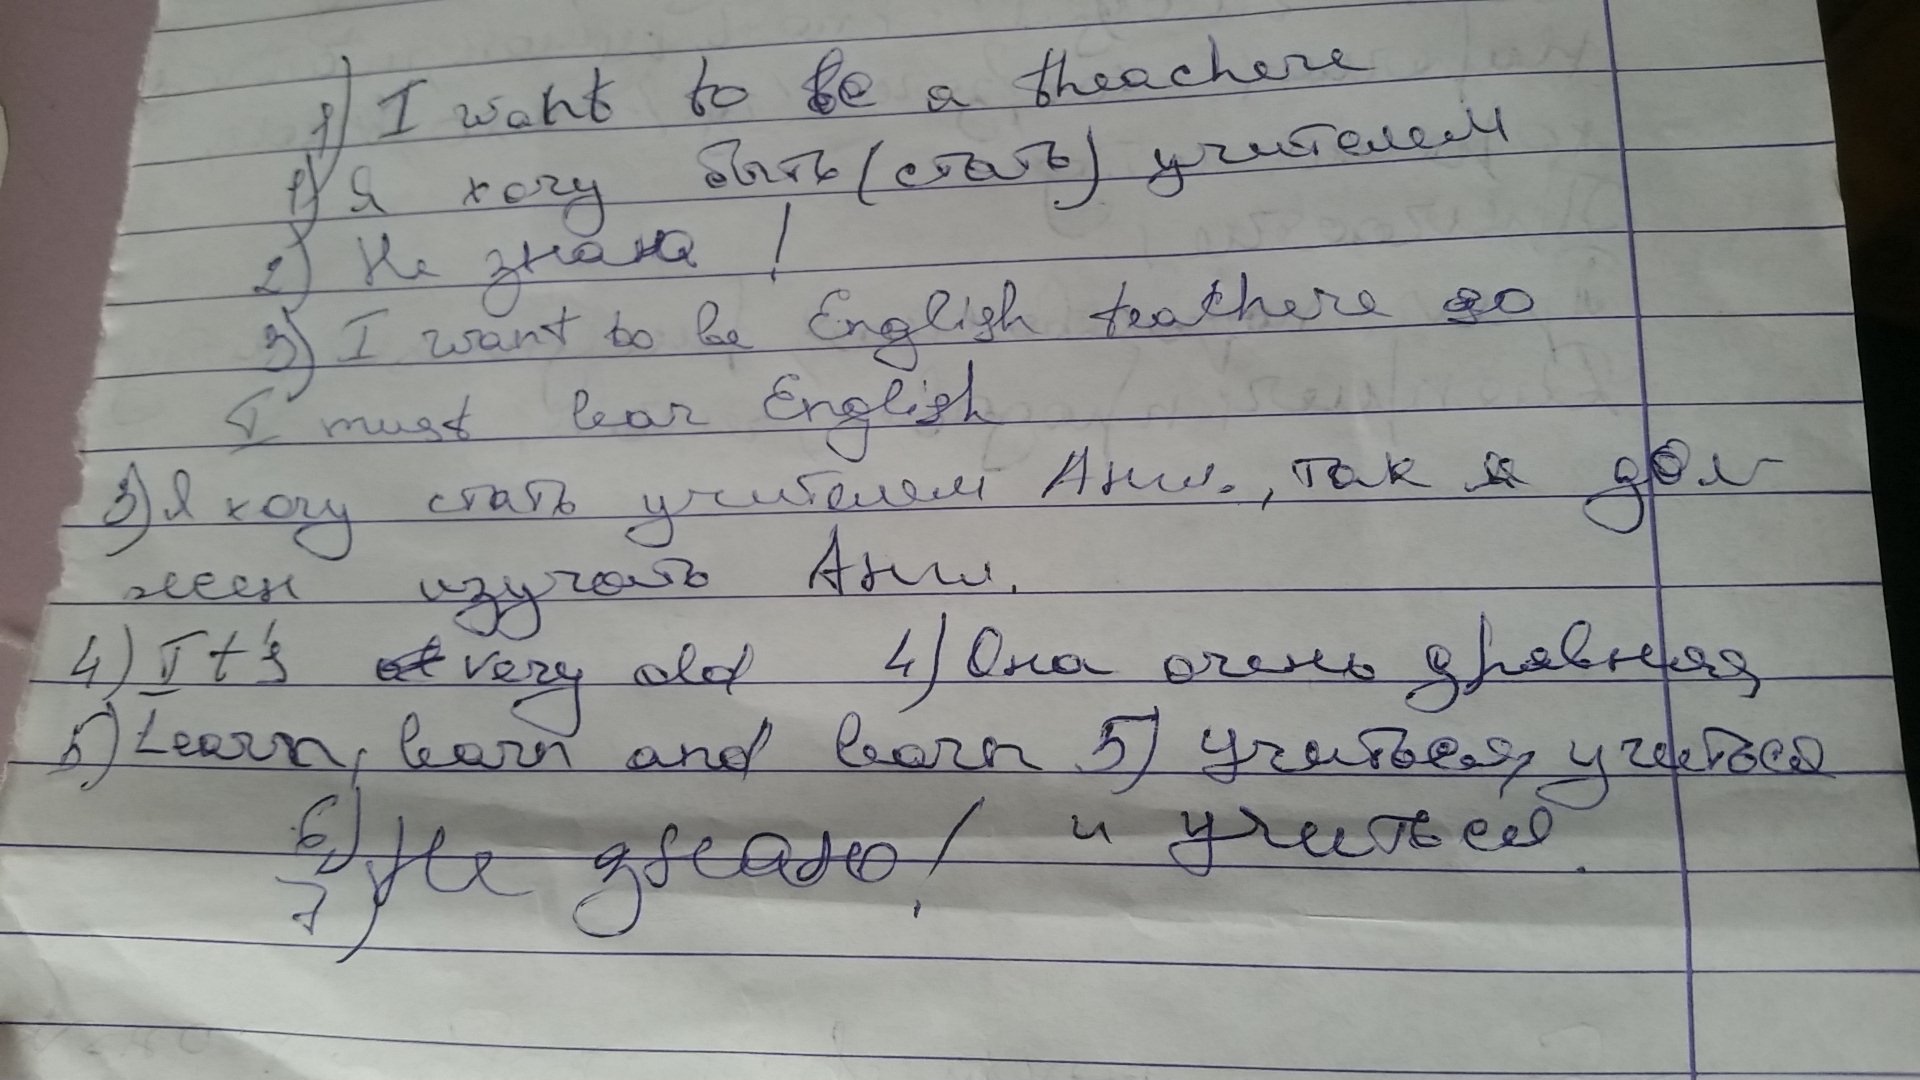 1) I want to be a theachere
1) Я хочу быть (стать) учителем
2) Не знаю !
3) I want to be English teathere so
I must lear English
3) Я хочу стать учителем Англ., так я дол-
жен изучать Англ.
4) It's very old 4) Она очень дрявняя
5) Learn, learn and learn 5) Учиться, учиться
6) Не знаю ! и учиться.
7)